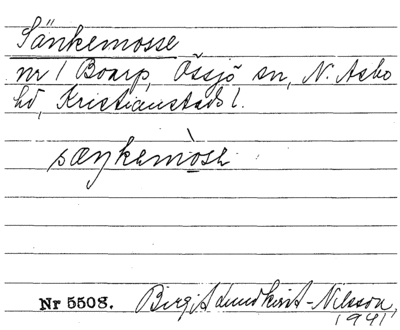 Sänkemosse
nr 1 Boarp, Össjö sn, N. Asbo
hd, Kristianstads l.
sæŋkemòsə
Nr 5508. Birgit Lundkvist-Nilsson,
1941